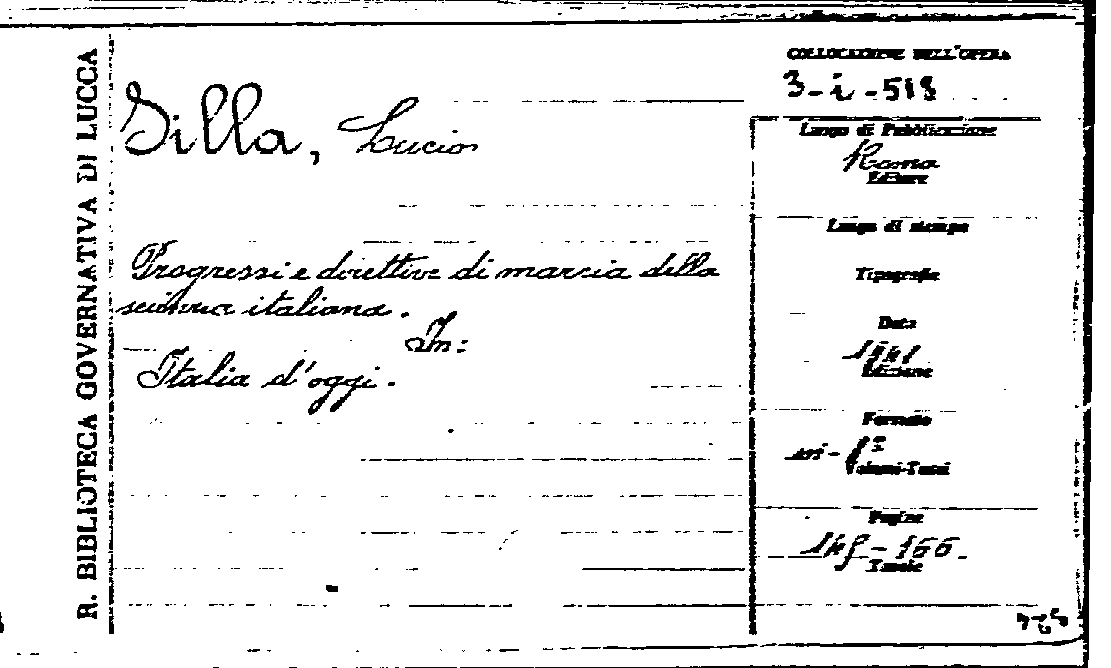 R. BIBLIOTECA GOVERNATIVA DI LUCCA
Silla, Lucio
Progressi e direttive di marcia della
scienza italiana.
In:
Italia d'oggi.
COLLOCAZIONE DELL'OPERA
3-i-518
Luogo di Pubblicazione
Roma
Editore
Luogo di stampa
Tipografia
Data
1941
Edizione
Formato
in-8°
Volumi-Tomi
Pagine
149-166
Tavole